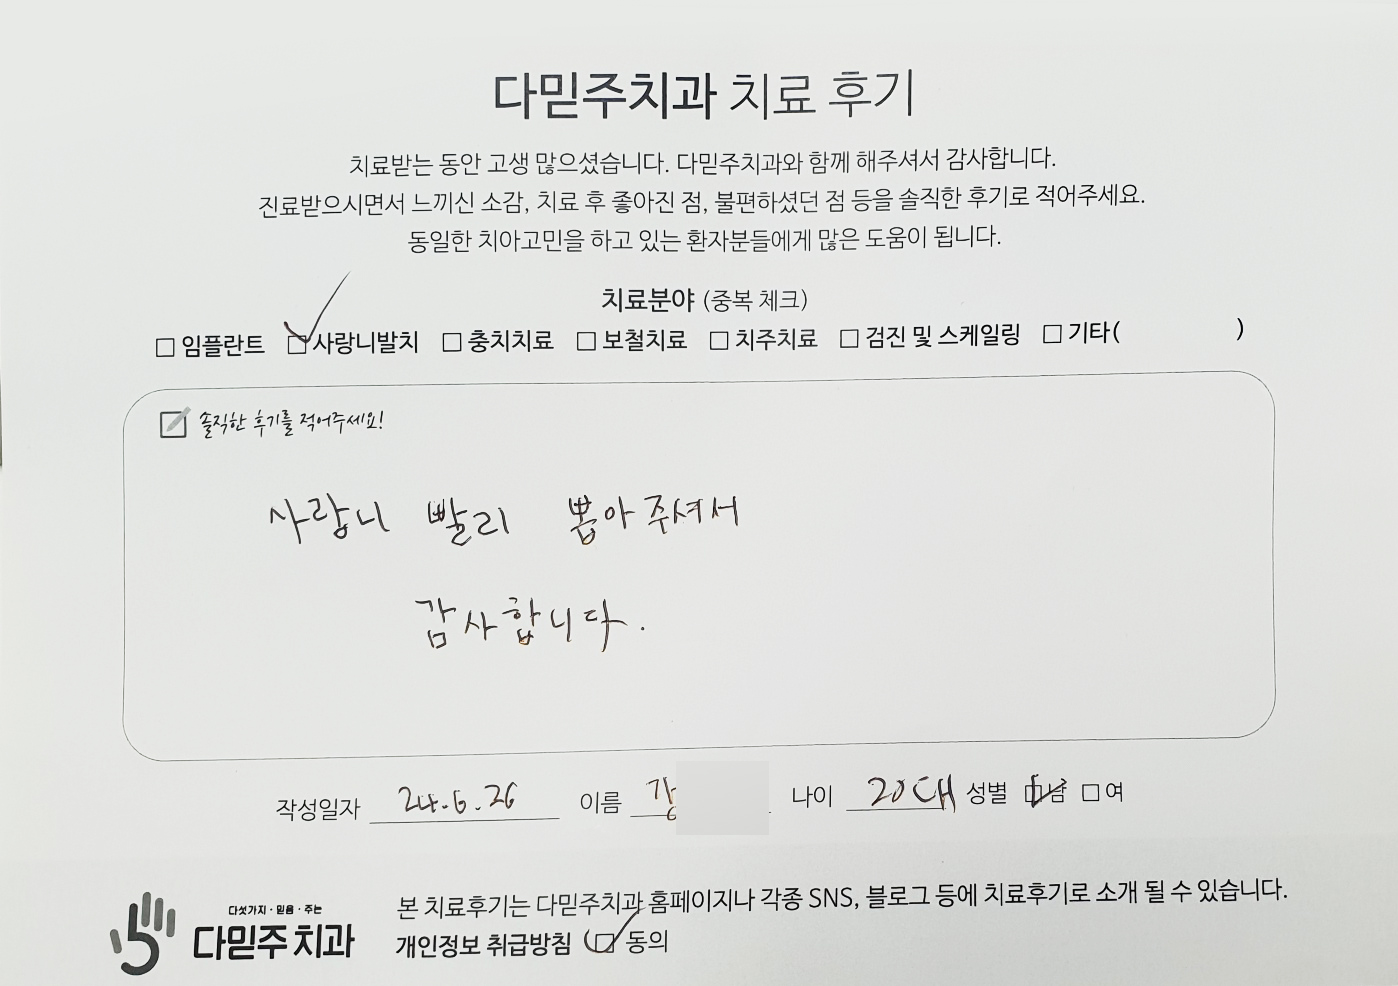 다믿주치과 치료 후기
치료받는 동안 고생 많으셨습니다. 다믿주치과와 함께 해주셔서 감사합니다.
진료받으시면서 느끼신 소감, 치료 후 좋아진 점, 불편하셨던 점 등을 솔직한 후기로 적어주세요.
동일한 치아고민을 하고 있는 환자분들에게 많은 도움이 됩니다.
치료분야 (중복 체크)
□ 임플란트 ☑ 사랑니발치 □ 충치치료 □ 보철치료 □ 치주치료 □ 검진 및 스케일링 □ 기타( )
솔직한 후기를 적어주세요!
사랑니 빨리 뽑아주셔서
감사합니다.
작성일자 24.6.26 이름 강 나이 20대 성별 ☑ 남 □ 여
다섯가지·믿음·주는
다믿주치과
본 치료후기는 다믿주치과 홈페이지나 각종 SNS, 블로그 등에 치료후기로 소개 될 수 있습니다.
개인정보 취급방침 ☑ 동의